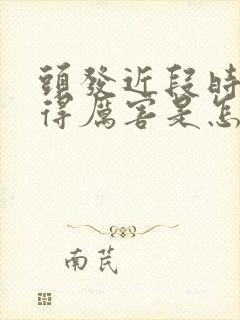 頭發近段時
得厲害是怎
南芪